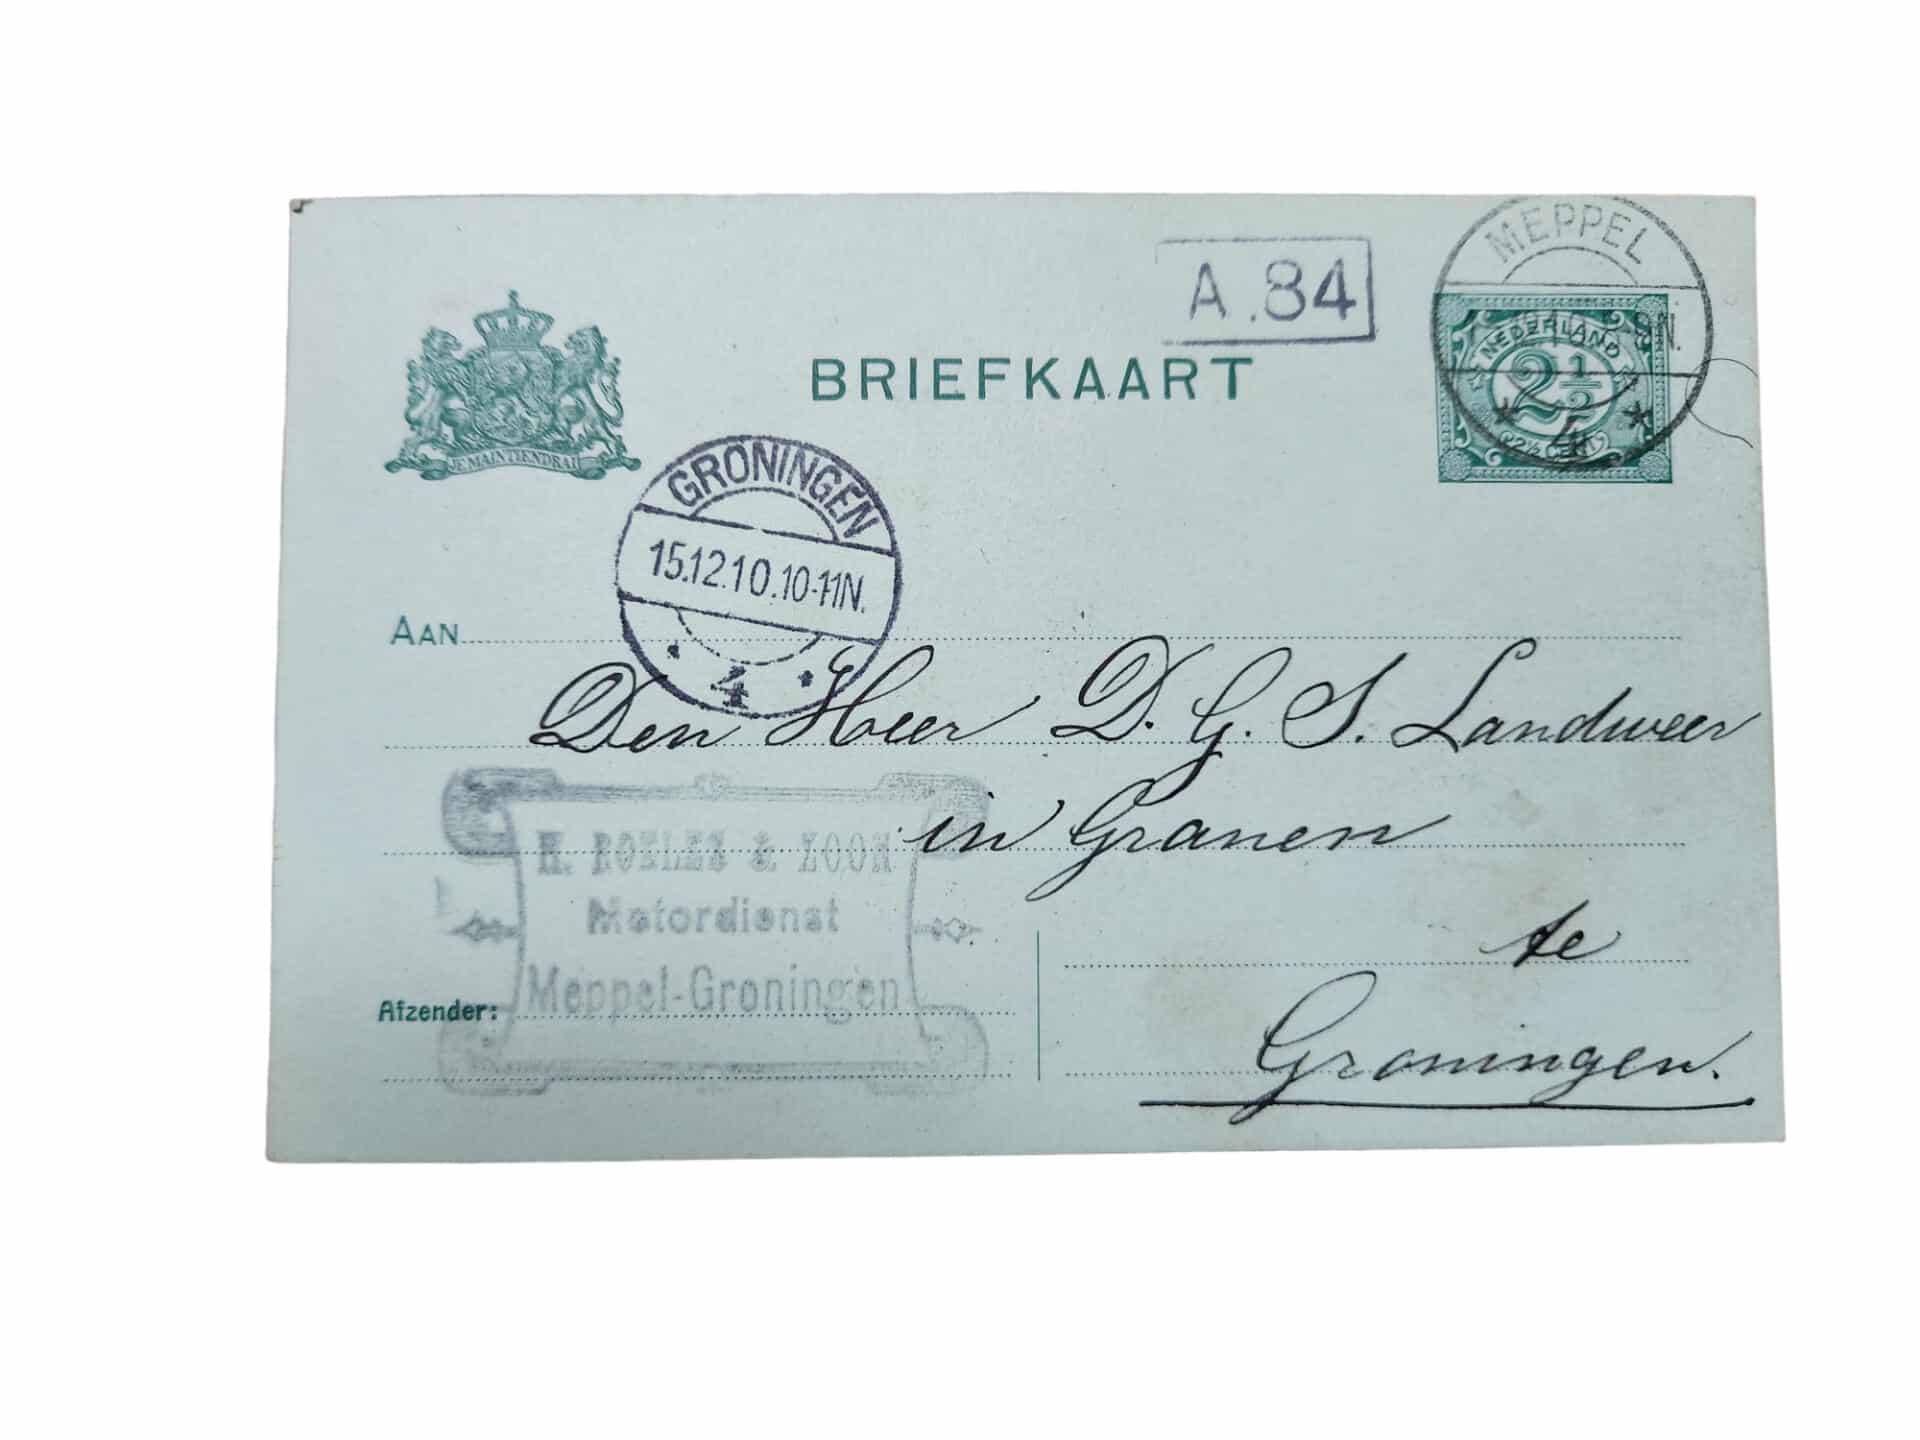 MEPPEL
A.84
9N.
NEDERLAND
2½
2½ CENT
4
BRIEFKAART
JE MAINTIENDRAI
GRONINGEN
15.12.10.10-11N.
4
AAN
Den Heer D. G. S. Landweer
in Granen
te
Groningen.
H. ROELES & ZOON
Motordienst
Meppel-Groningen
Afzender: